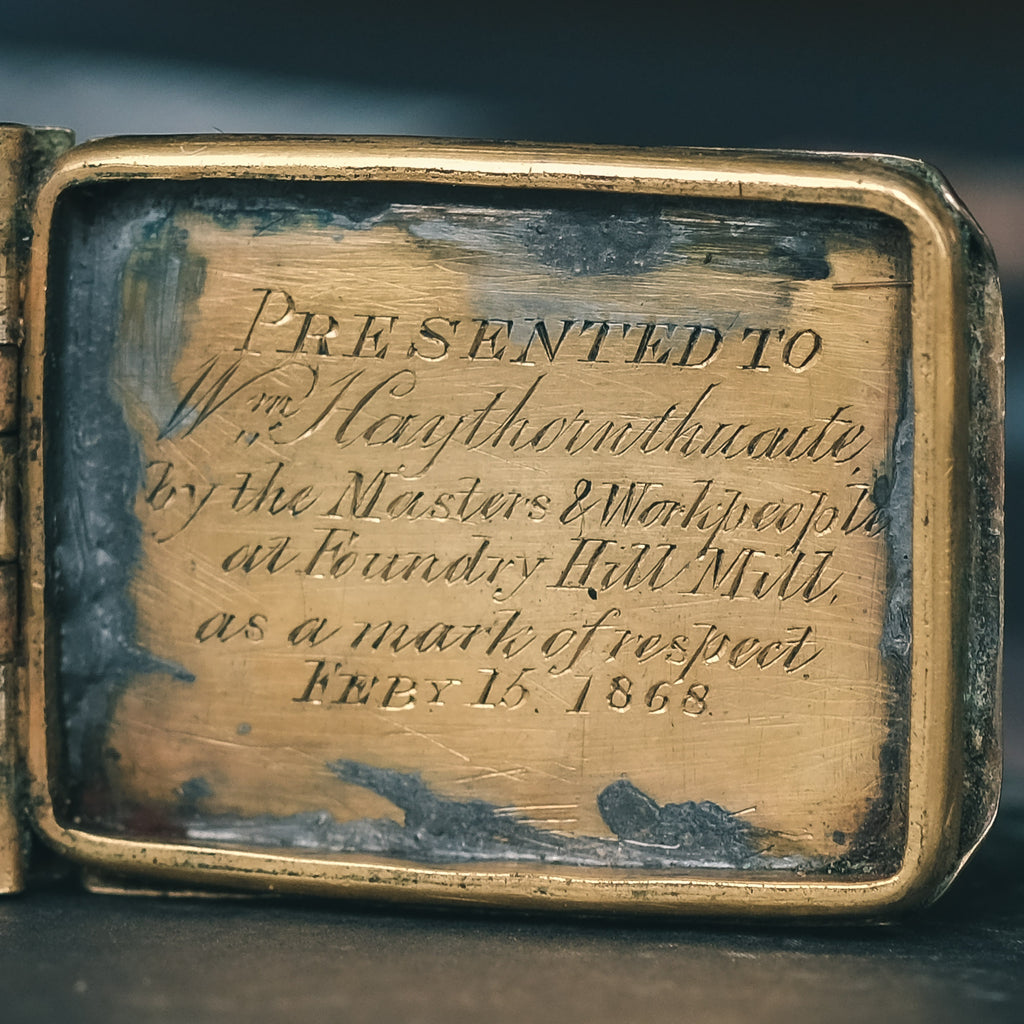 PRESENTED TO
Wm Haythornthuaite,
by the Masters & Workpeople
at Foundry Hill Mill,
as a mark of respect.
FEBY 15. 1868.